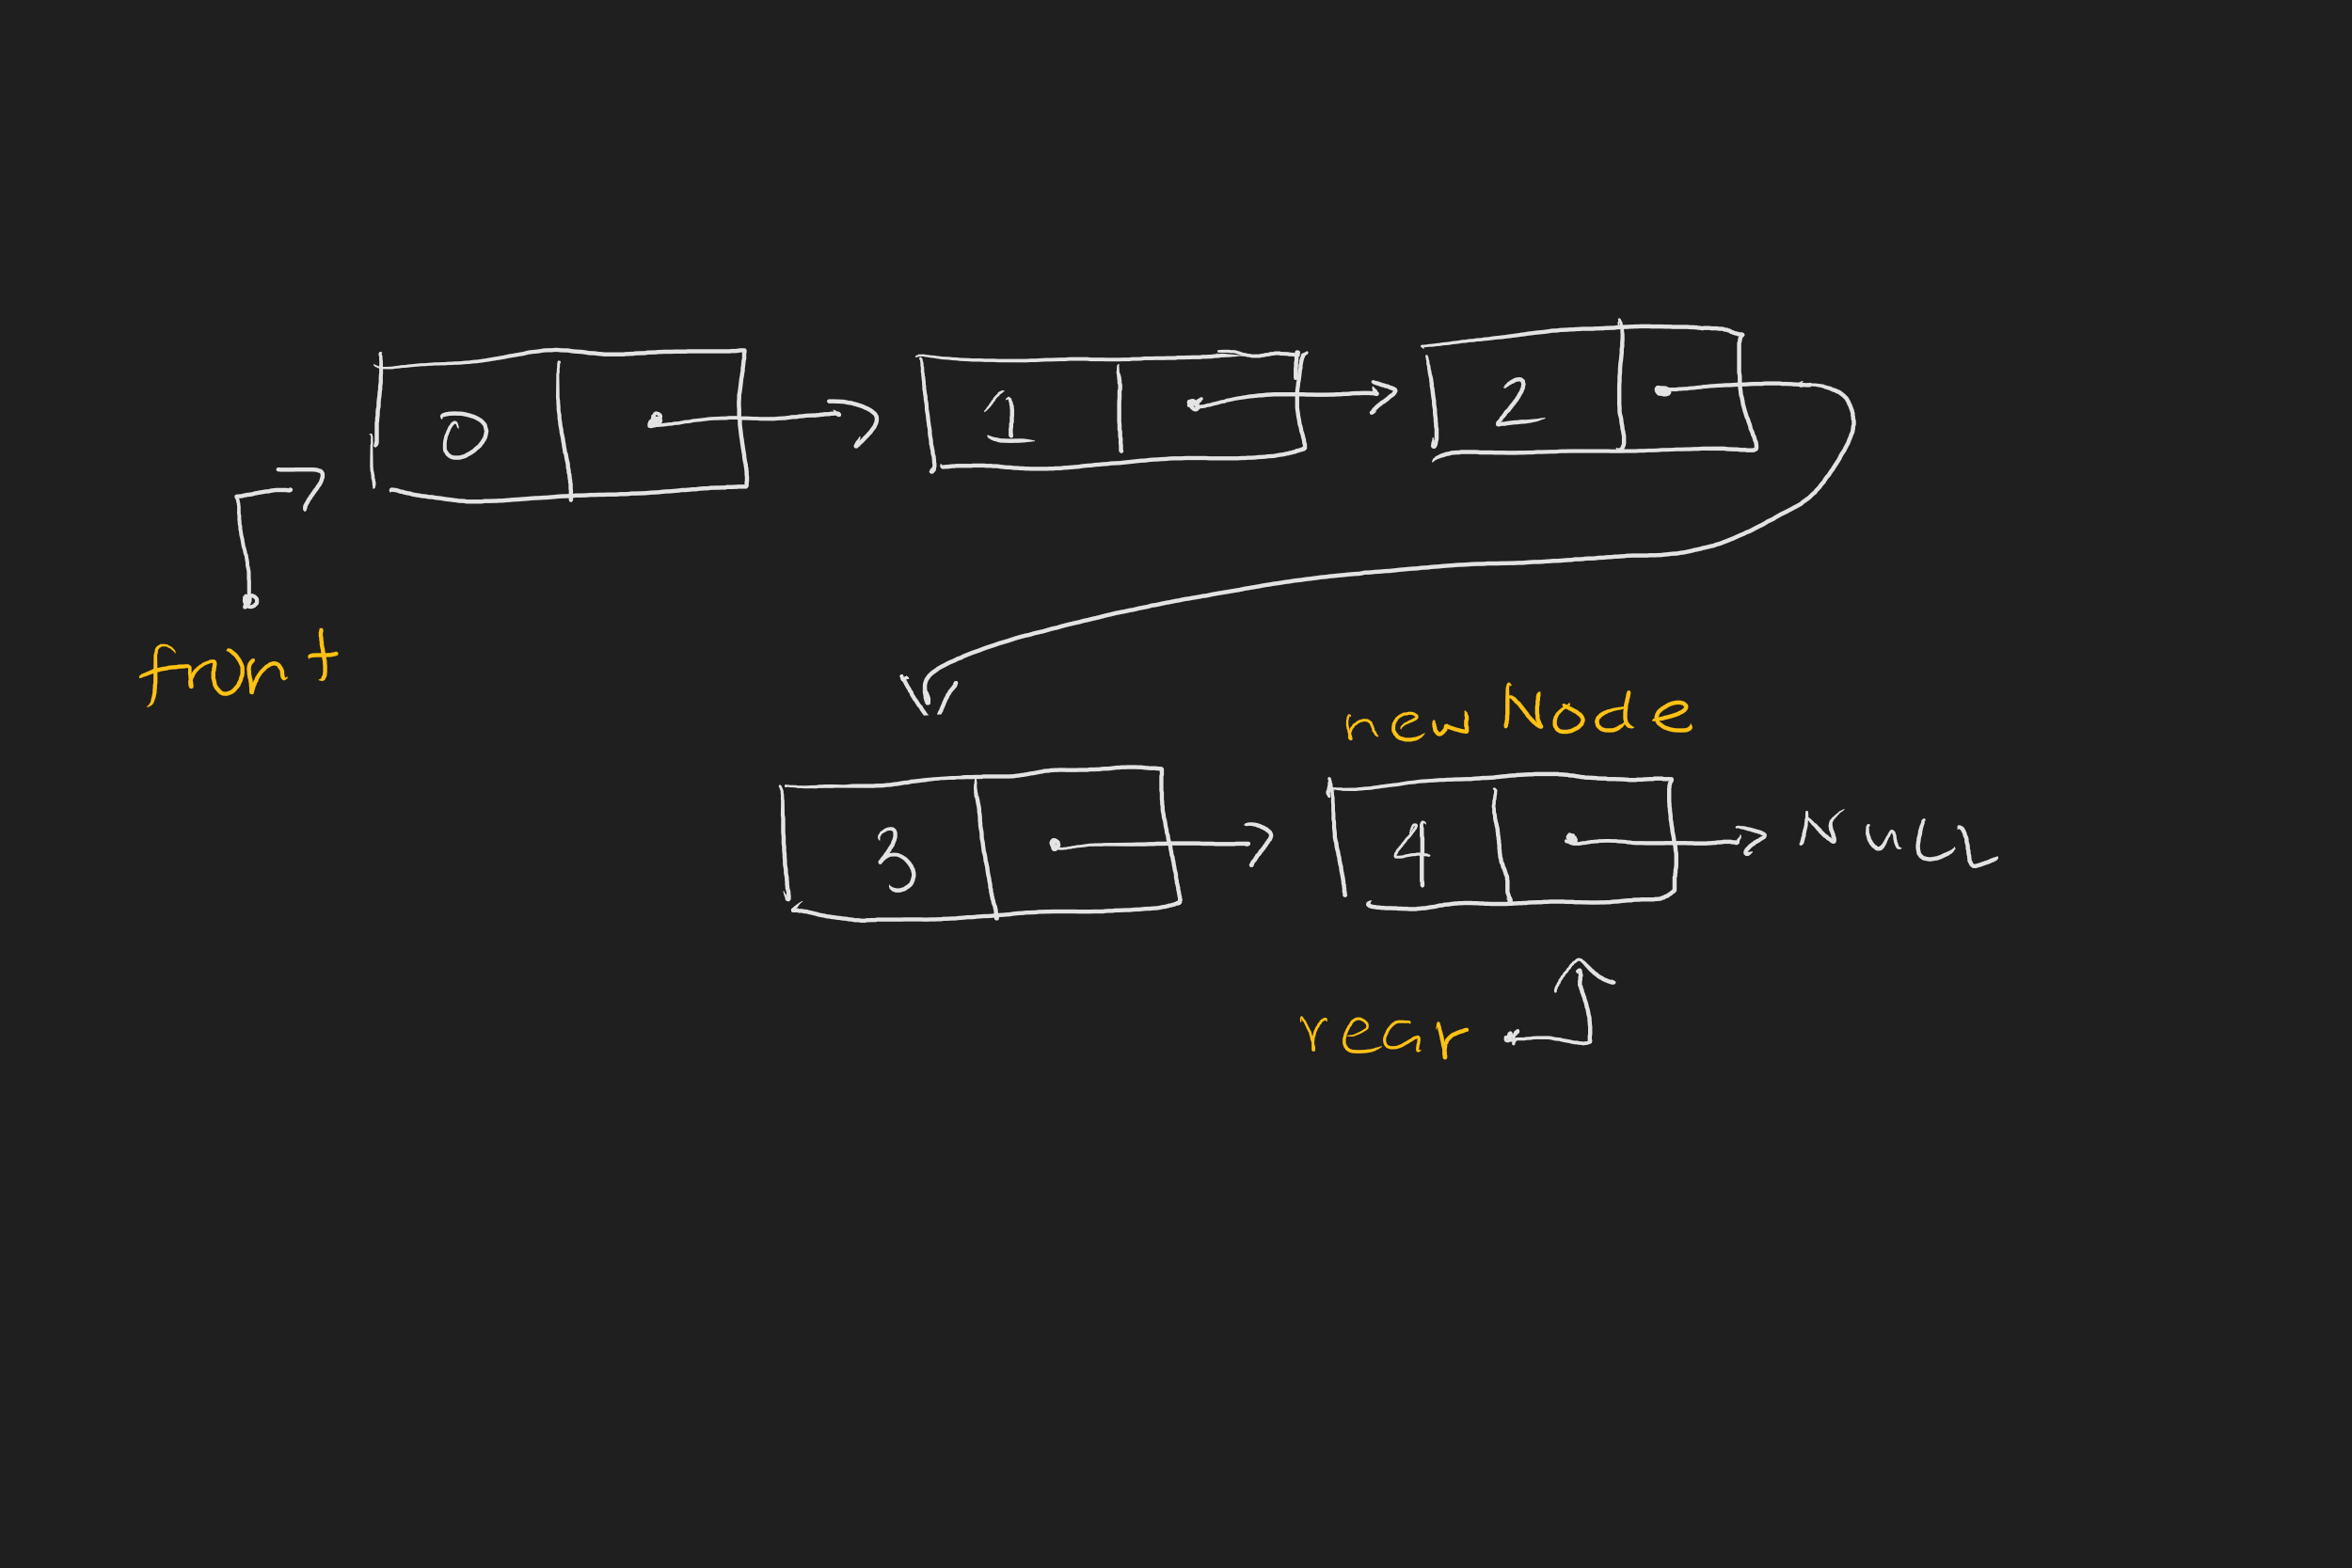 0 1 2
front
newNode
3 4 NULL
rear